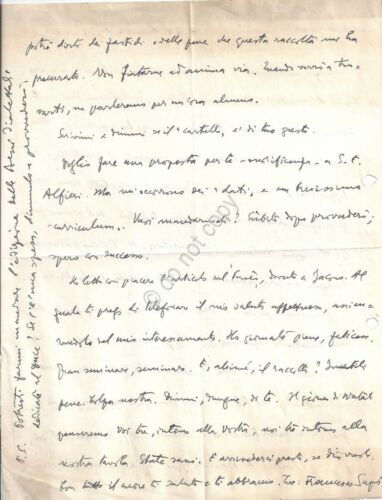 potrà dirti dei fastidi e delle pene che questa raccolta mi ha
procurato. Non fiatarne ad anima viva. Quando verrò a tro-
varti, ne parleremo per un'ora almeno.
Scrivimi e dimmi se il "cartello" è di tuo gusto.
Voglio fare una proposta per te a S. E.
Alfieri. Ma mi occorrono dei "dati", e un brevissimo
"curriculum". Vuoi mandarmeli? Subito dopo provvederò,
spero con successo.
Ho letto con piacere l'articolo nel dovuto a Jacono. Al
quale ti prego di telefonare il mio saluto affettuoso, assicu-
randolo del mio interessamento. Ho giornate piene, faticose.
Gran seminare, seminare. E, ahimè, il raccolto? Inutili
pene. Colpa nostra. Dimmi, dunque, di te. Il giorno di Natale
penseremo voi tre, intorno alla vostra, noi tre intorno alla
nostra tavola. State sani. E arrivederci presto, se Dio vuole.
Con tutto il cuore ti saluto e ti abbraccio. Tuo Francesco
P.S. Potresti farmi mandare l'edizione delle Poesie dialettali
dedicate al Duce? Se c'è una spesa, dimmelo e provvederò.
© do not copy